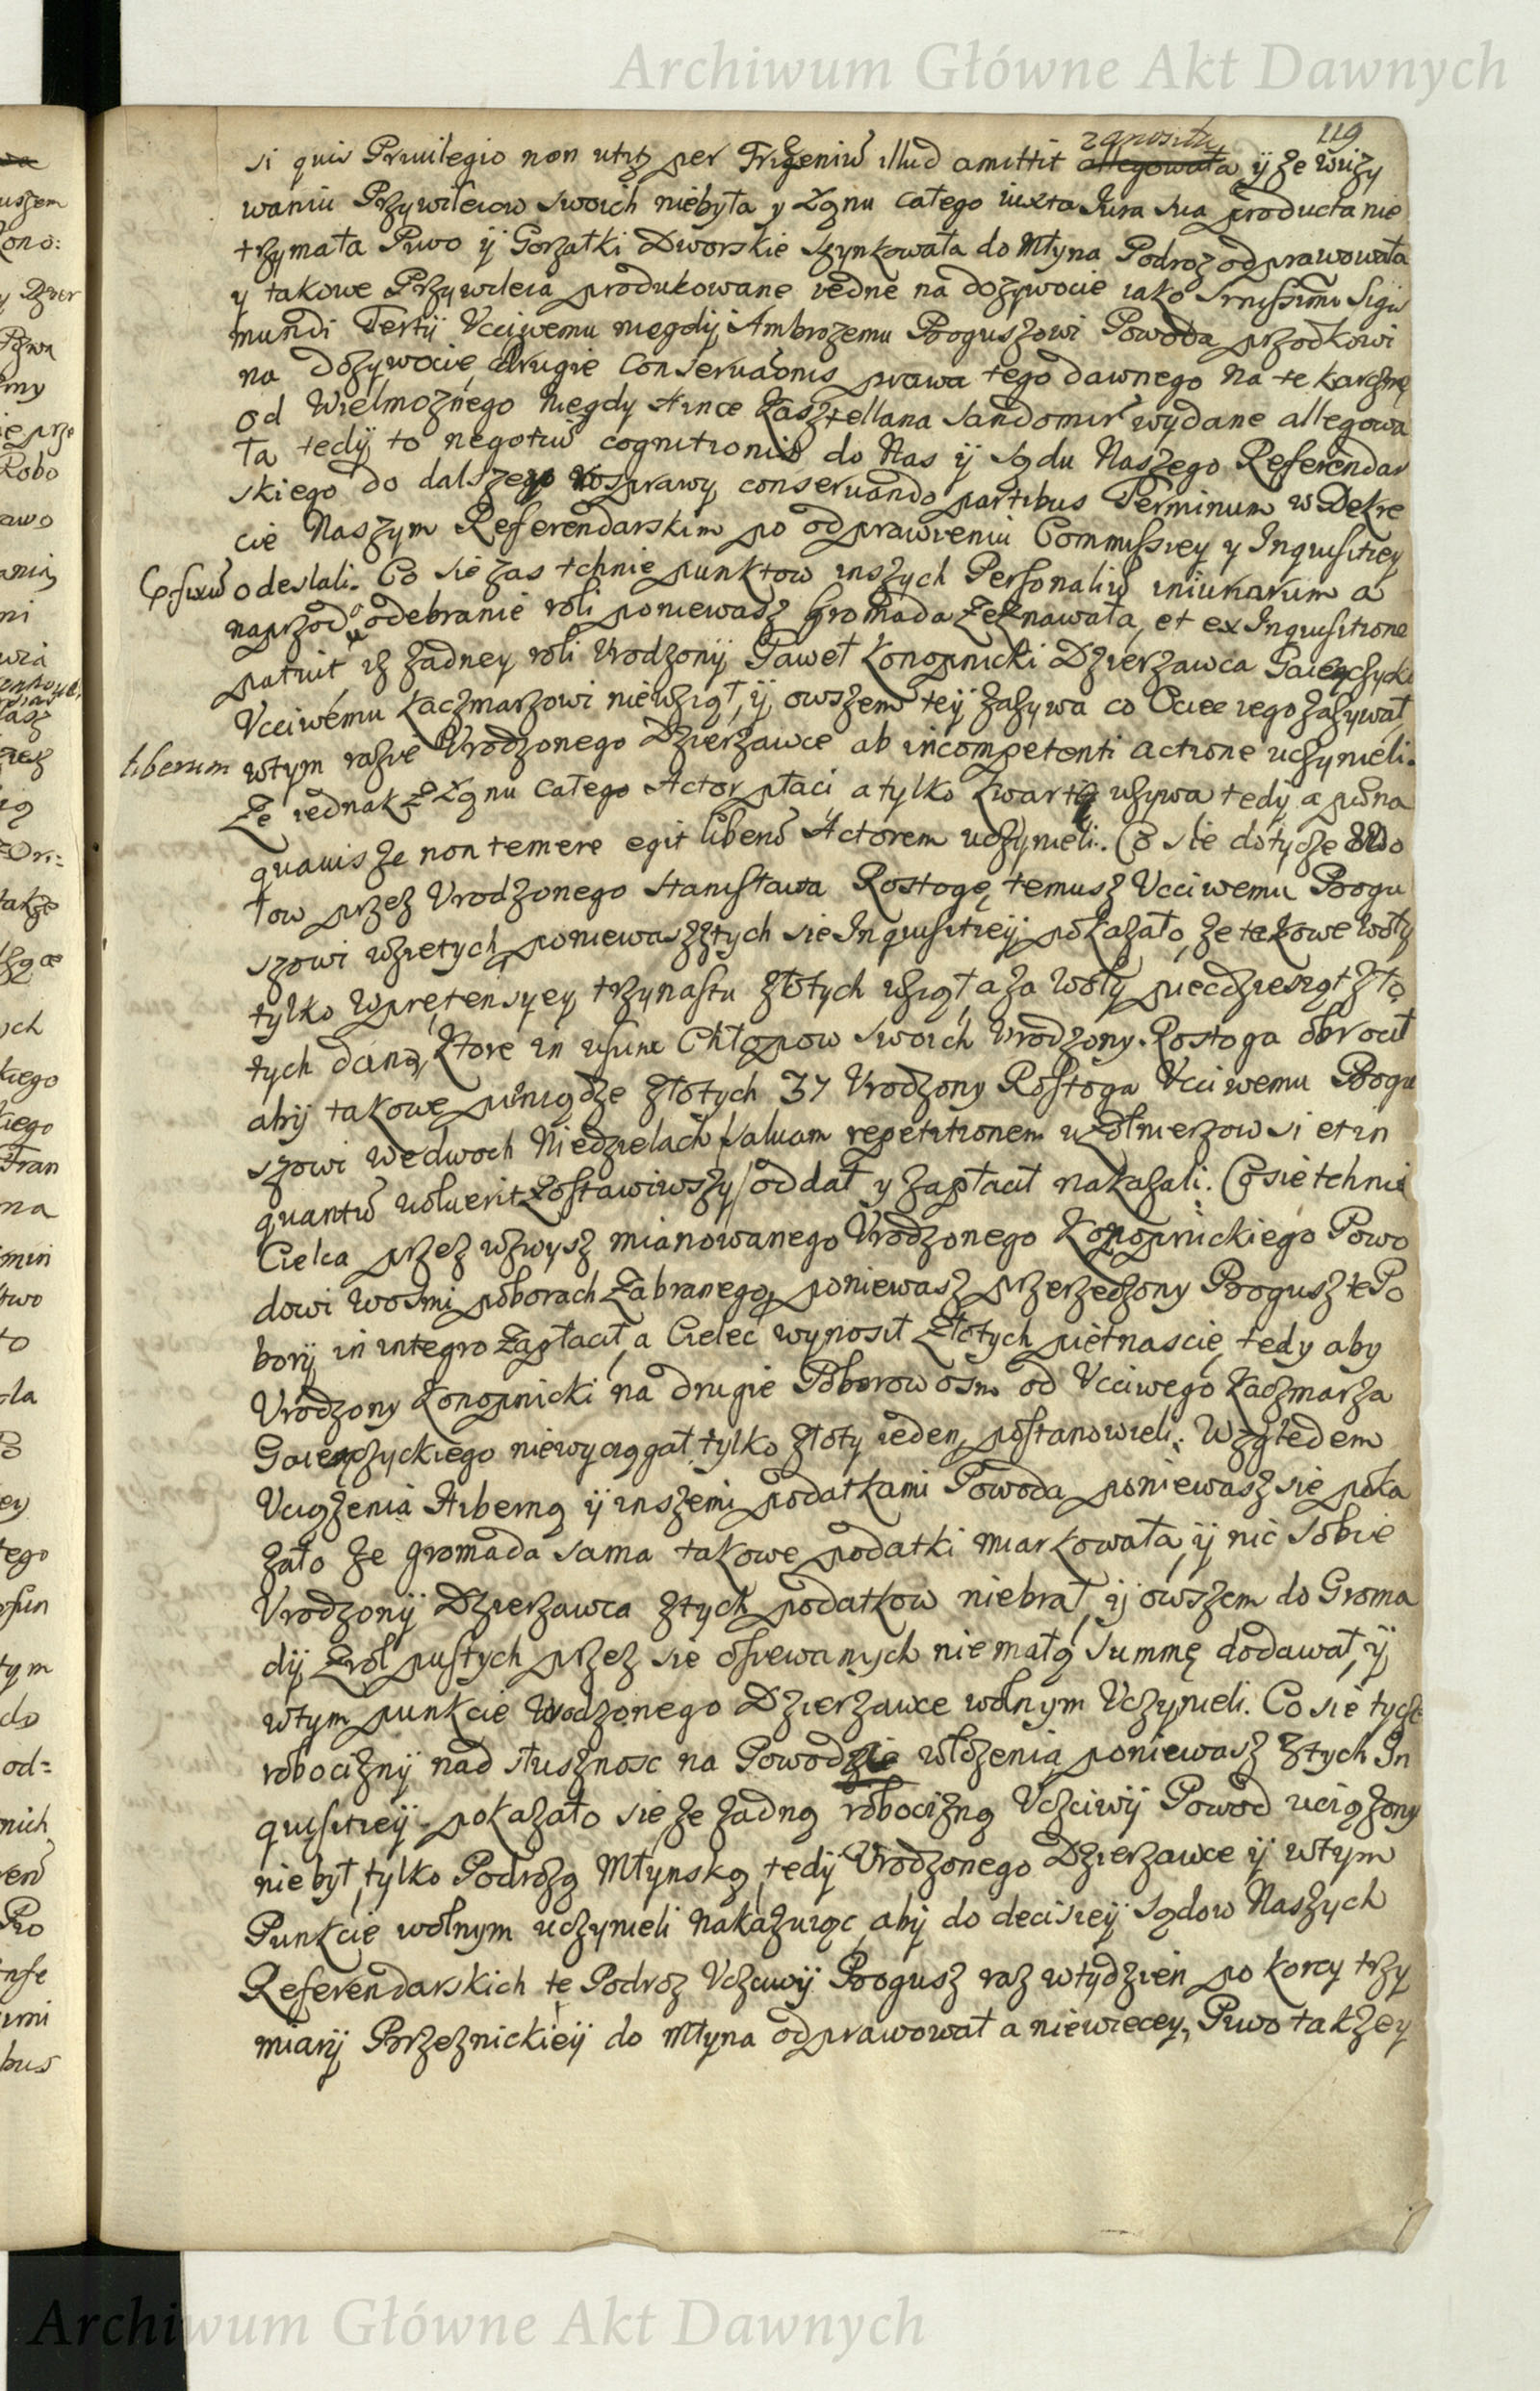 Archiwum Główne Akt Dawnych
119
zanosiła
si quis Priuilegio non utitz per Trigeniū illud amittit allegowała ÿ ze wuży
waniu Przywileiow swoich niebyła y Łanu całego iuxta Iura sua producta nie
trzymała Piwo ÿ Gorzałki Dworskie szynkowała do Młyna Podroz odprawowała
y takowe Przywileia produkowane iedne na dozywocie iako Srnissimi Sigis
mundi Tertÿ Vcciwemu niegdÿ Ambrozemu Boguszowi Powoda przodkowi
na dozywocie drugie Conseruaōnis prawa tego dawnego na te karczmę
od Wielmoznego niegdy Kasztellana Sandomir wydane allegowa
ła tedÿ to negotiū cognitionis do Nas ÿ Sądu Naszego Referendar
skiego do dalszego rosprawy conseruando partibus Terminum w Dekre
cie Naszym Referendarskim po odprawieniu Commissiey y Inquisitiey
odeslali. Co sie zas tchnie punktow inszych Personaliū iniuriarum a
naprzod o odebranie roli poniewasz Gromada zeznawała, et ex Inquisitione
patuit iz zadney roli Vrodzonÿ Paweł Konopnicki Dzierzawca
Vcciwemu Kaczmarzowi niewziął, ÿ owszem teÿ zazywa co Ociec iego zazywał,
liberum wtym razie Vrodzonego Dzierzawce ab incompetenti actione uczynieli.
Ze iednak z Łanu całego Actor płaci a tylko kwartę uzywa tedÿ a pœna
quauis ze non temere egit liberū Actorem uczynieli. Co sie dotycze Wo
łow przez Vrodzonego Stanisława Rostogę, temusz Vcciwemu Bogu
szowi wzietych, poniewasz ztych sie Inquisitieÿ pokazało, ze takowe woły
tylko wpretensyey trzynastu złotych wziął, a za woły piecdziesiąt zło
tych dano, Ktore in usum Chłopow swoich Vrodzony Rostoga obrocił
abÿ takowe pieniądze złotych 37 Vrodzony Rostoga Vcciwemu Bogu
szowi wedwoch Niedzielach /saluam repetitionem u Zołnierzow si et in
quantū uoluerit zostawiwszy/ oddał y zapłacił nakazali. Co sie tchnie
Cielca przez wzwysz mianowanego Vrodzonego Konopnickiego Powo
dowi wosmi poborach zabranego, poniewasz przerzeczony Bogusz te Po
borÿ in integro zapłacił, a Cielec wynosił złotych pietnascie, tedy aby
Vrodzony Konopnicki na drugie Poborow osm od Vcciwego Kaczmarza
niewyciągał tylko złoty ieden, postanowieli. Względem
Vciązenia Hiberną ÿ inszemi podatkami Powoda, poniewasz sie poka
zało ze gromada sama takowe podatki miarkowała, ÿ nic sobie
Vrodzonÿ Dzierzawca ztych podatkow niebrał, ÿ owszem do Groma
dÿ z rol pustych przez sie osiewanych niemałą summę dodawał, ÿ
wtym punkcie Vrodzonego Dzierzawce wolnym Vczynieli. Co sie tycze
robociznÿ nad słusznosc na Powodzie włozenia, poniewasz ztych In
quisitieÿ pokazało sie ze zadną robocizną Vczciwÿ Powod uciązony
niebył, tylko Podrozą Młynską, tedÿ Vrodzonego Dzierzawce ÿ wtym
Punkcie wolnym uczynieli nakazuiąc, abÿ do decisieÿ Sądow Naszych
Referendarskich te Podroz Vczciwÿ Bogusz raz wtydzien po korcy trzy
miarÿ Brzeznickieÿ do Młyna odprawował a niewiecey, Piwo takzey
Archiwum Główne Akt Dawnych